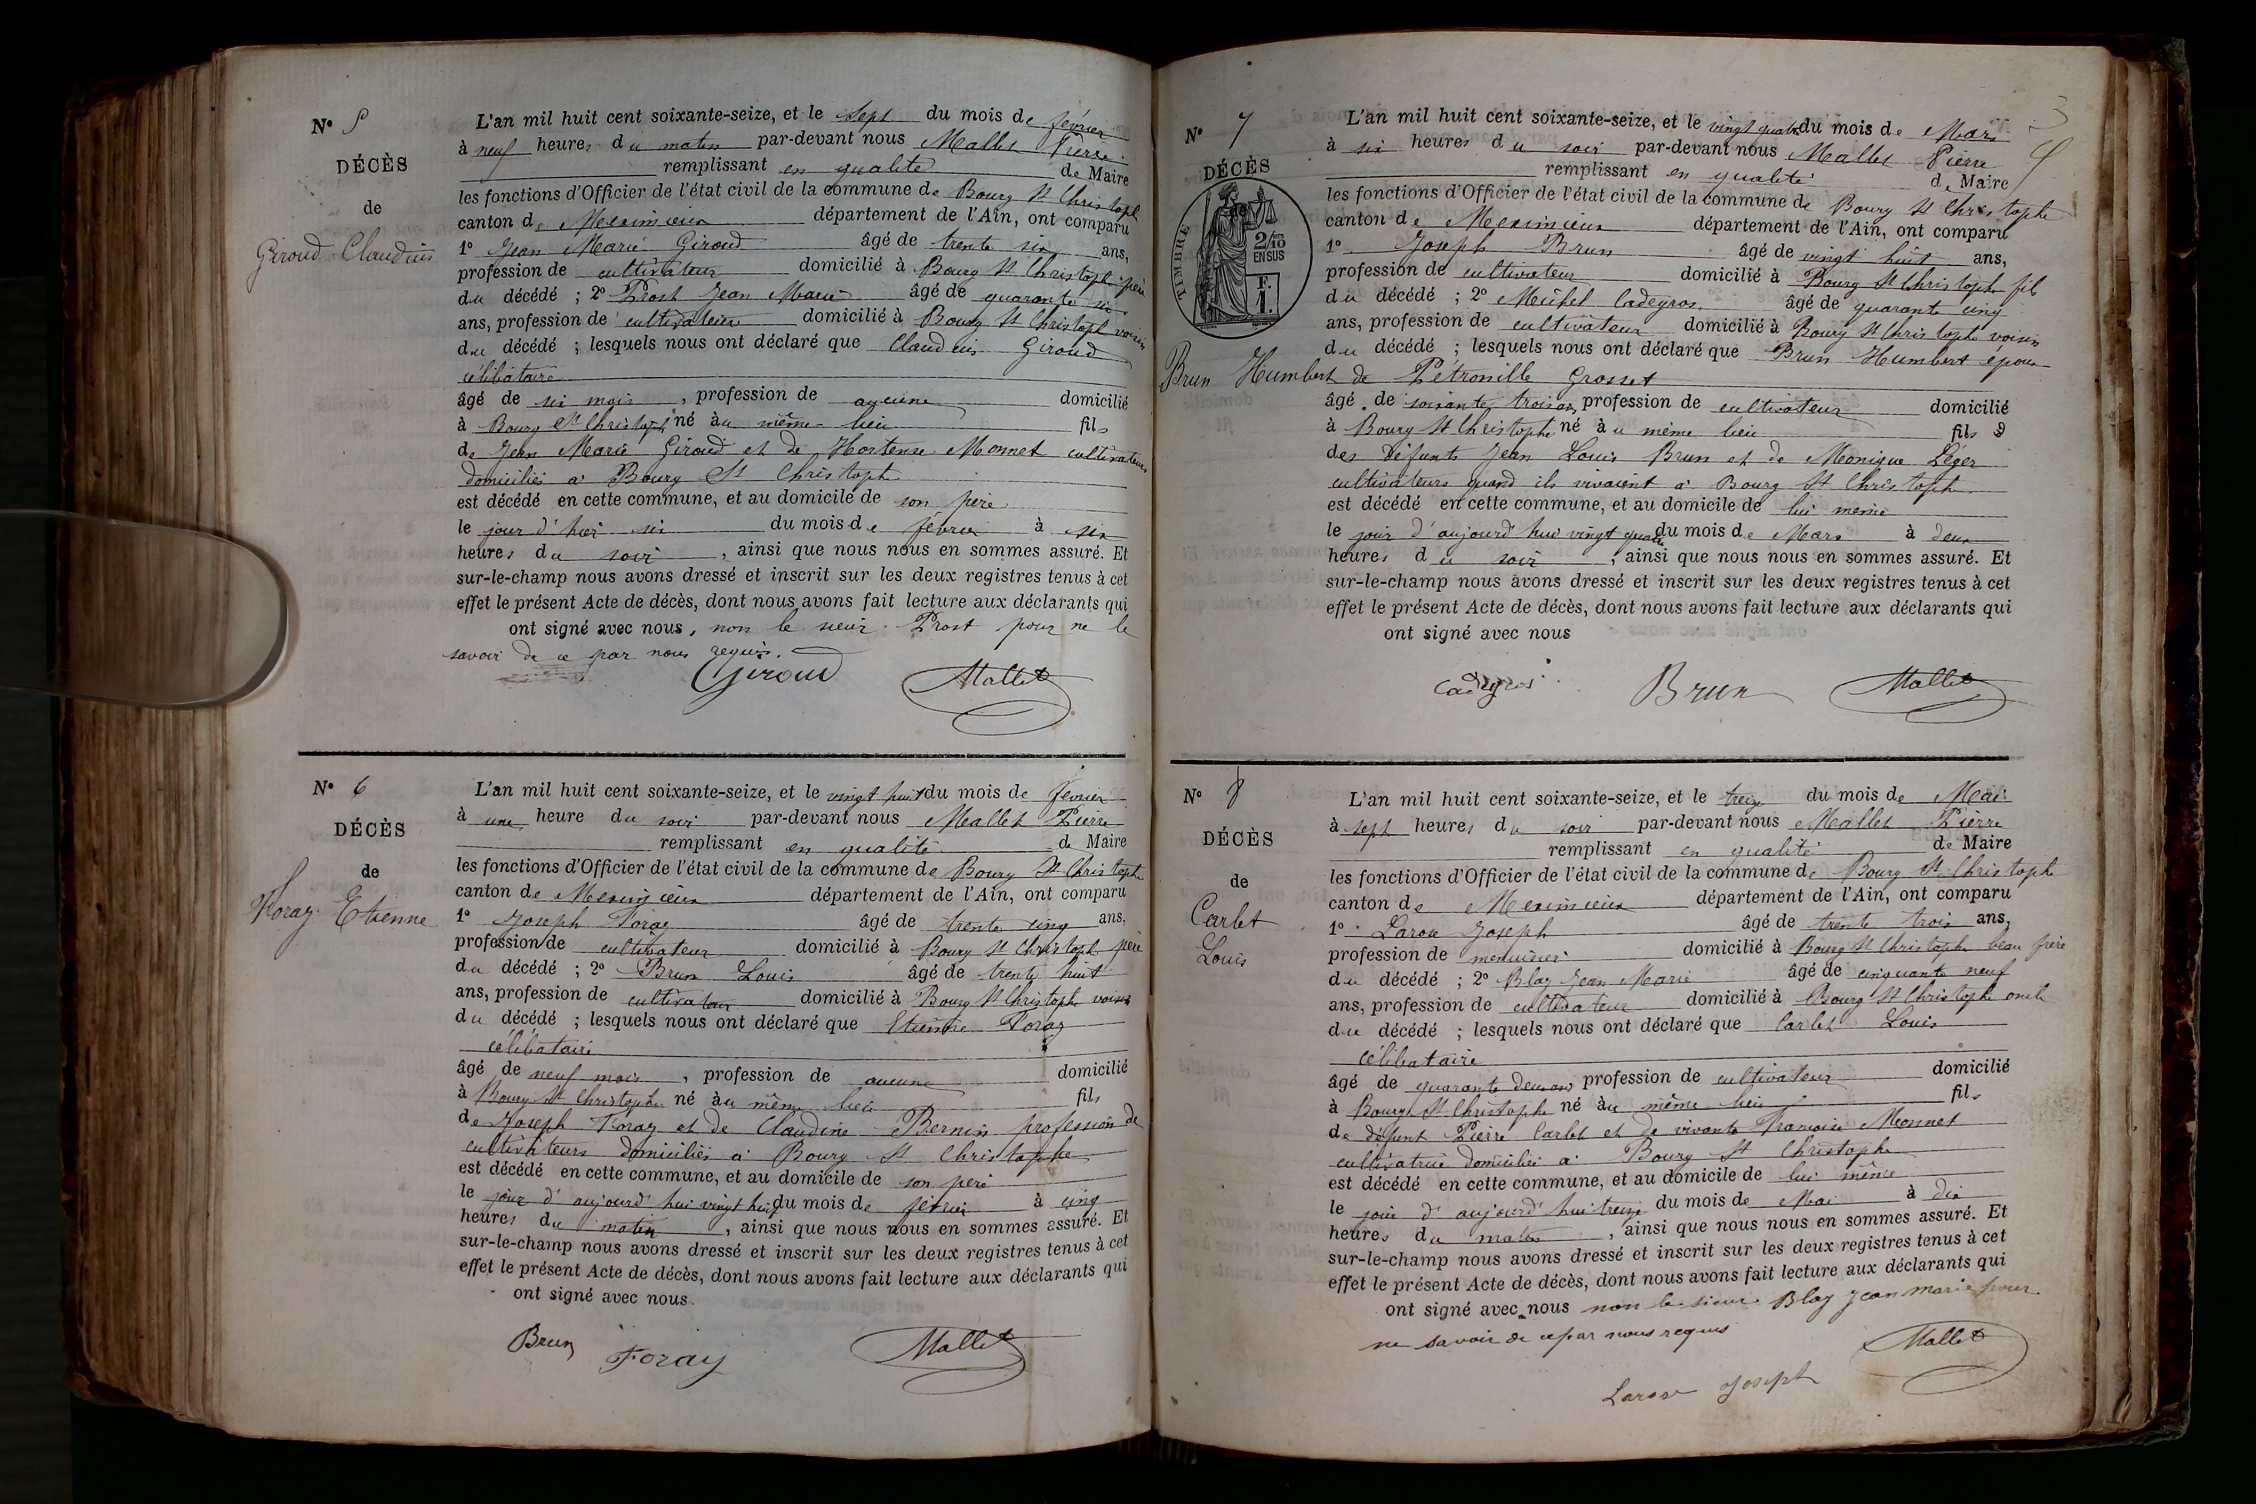 N° 5
DÉCÈS
de
Giroud Claudius
L'an mil huit cent soixante-seize, et le sept du mois de février
à neuf heures du matin par-devant nous Mallet Pierre
remplissant en qualité de Maire
les fonctions d'Officier de l'état civil de la commune de Bourg St Christophe
canton de Meximieux département de l'Ain, ont comparu
1° Jean Marie Giroud âgé de trente six ans,
profession de cultivateur domicilié à Bourg St Christophe père
du décédé ; 2° Prost Jean Marie âgé de quarante six
ans, profession de cultivateur domicilié à Bourg St Christophe voisin
du décédé ; lesquels nous ont déclaré que Claudius Giroud
célibataire
âgé de six mois, profession de aucune domicilié
à Bourg St Christophe né au même lieu fils
de Jean Marie Giroud et de Hortense Monnet cultivateurs
domiciliés à Bourg St Christophe
est décédé en cette commune, et au domicile de son père
le jour d'hier six du mois de février à six
heures du soir, ainsi que nous nous en sommes assuré. Et
sur-le-champ nous avons dressé et inscrit sur les deux registres tenus à cet
effet le présent Acte de décès, dont nous avons fait lecture aux déclarants qui
ont signé avec nous, non le sieur Prost pour ne le
savoir de ce par nous requis.
Giroud Mallet
N° 6
DÉCÈS
de
Foray Etienne
L'an mil huit cent soixante-seize, et le vingt huit du mois de février
à une heure du soir par-devant nous Mallet Pierre
remplissant en qualité de Maire
les fonctions d'Officier de l'état civil de la commune de Bourg St Christophe
canton de Meximieux département de l'Ain, ont comparu
1° Joseph Foray âgé de trente cinq ans,
profession de cultivateur domicilié à Bourg St Christophe père
du décédé ; 2° Brun Louis âgé de trente huit
ans, profession de cultivateur domicilié à Bourg St Christophe voisin
du décédé ; lesquels nous ont déclaré que Etienne Foray
célibataire
âgé de neuf mois, profession de aucune domicilié
à Bourg St Christophe né au même lieu fils
de Joseph Foray et de Claudine Bernin profession de
cultivateurs domiciliés à Bourg St Christophe
est décédé en cette commune, et au domicile de son père
le jour d'aujourd'hui vingt huit du mois de février à cinq
heures du matin, ainsi que nous nous en sommes assuré. Et
sur-le-champ nous avons dressé et inscrit sur les deux registres tenus à cet
effet le présent Acte de décès, dont nous avons fait lecture aux déclarants qui
ont signé avec nous.
Brun Foray Mallet
3
N° 7
DÉCÈS
de
TIMBRE
2/10
EN SUS
F.
1.
Brun Humbert
L'an mil huit cent soixante-seize, et le vingt quatre du mois de Mars
à six heures du soir par-devant nous Mallet Pierre
remplissant en qualité de Maire
les fonctions d'Officier de l'état civil de la commune de Bourg St Christophe
canton de Meximieux département de l'Ain, ont comparu
1° Joseph Brun âgé de vingt huit ans,
profession de cultivateur domicilié à Bourg St Christophe fils
du décédé ; 2° Michel Cadegros âgé de quarante cinq
ans, profession de cultivateur domicilié à Bourg St Christophe voisin
du décédé ; lesquels nous ont déclaré que Brun Humbert époux
de Pétronille Grosset
âgé de soixante trois ans profession de cultivateur domicilié
à Bourg St Christophe né au même lieu fils
des défunts Jean Louis Brun et de Monique Léger
cultivateurs quand ils vivaient à Bourg St Christophe
est décédé en cette commune, et au domicile de lui même
le jour d'aujourd'hui vingt quatre du mois de Mars à deux
heures du soir, ainsi que nous nous en sommes assuré. Et
sur-le-champ nous avons dressé et inscrit sur les deux registres tenus à cet
effet le présent Acte de décès, dont nous avons fait lecture aux déclarants qui
ont signé avec nous
Cadegros Brun Mallet
N° 8
DÉCÈS
de
Carlet
Louis
L'an mil huit cent soixante-seize, et le treize du mois de Mai
à sept heures du soir par-devant nous Mallet Pierre
remplissant en qualité de Maire
les fonctions d'Officier de l'état civil de la commune de Bourg St Christophe
canton de Meximieux département de l'Ain, ont comparu
1° Laroue Joseph âgé de trente trois ans,
profession de menuisier domicilié à Bourg St Christophe beau frère
du décédé ; 2° Blay Jean Marie âgé de cinquante neuf
ans, profession de cultivateur domicilié à Bourg St Christophe oncle
du décédé ; lesquels nous ont déclaré que Carlet Louis
célibataire
âgé de quarante deux ans profession de cultivateur domicilié
à Bourg St Christophe né au même lieu fils
de défunt Pierre Carlet et de vivante Françoise Monnet
cultivatrice domiciliée à Bourg St Christophe
est décédé en cette commune, et au domicile de lui même
le jour d'aujourd'hui treize du mois de Mai à dix
heures du matin, ainsi que nous nous en sommes assuré. Et
sur-le-champ nous avons dressé et inscrit sur les deux registres tenus à cet
effet le présent Acte de décès, dont nous avons fait lecture aux déclarants qui
ont signé avec nous non le sieur Blay Jean Marie pour
ne savoir de ce par nous requis
Mallet
Joseph